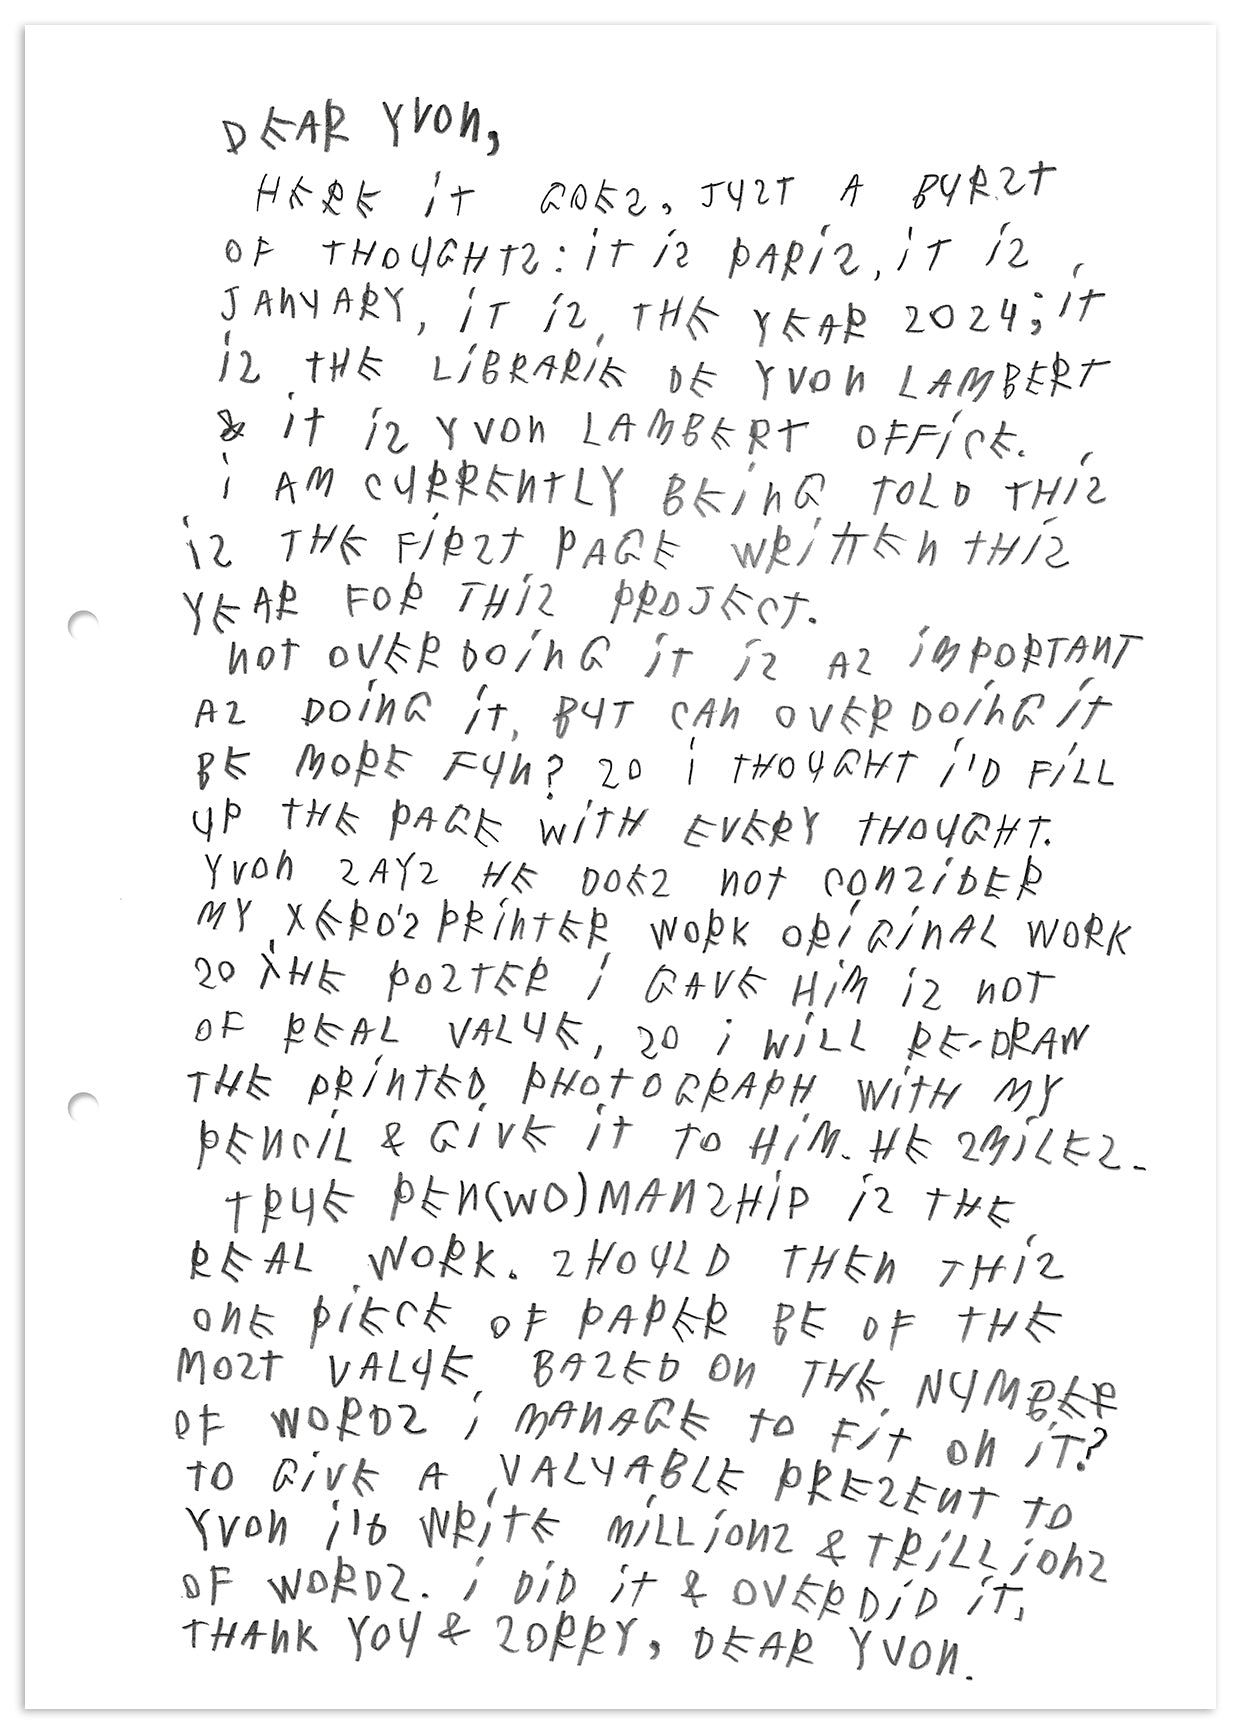 DEAR YVON,
HERE IT GOES, JUST A BURST
OF THOUGHTS: IT IS PARIS, IT IS
JANUARY, IT IS THE YEAR 2024; IT
IS THE LIBRARIE DE YVON LAMBERT
& IT IS YVON LAMBERT OFFICE.
I AM CURRENTLY BEING TOLD THIS
IS THE FIRST PAGE WRITTEN THIS
YEAR FOR THIS PROJECT.
NOT OVERDOING IT IS AS IMPORTANT
AS DOING IT, BUT CAN OVERDOING IT
BE MORE FUN? SO I THOUGHT I'D FILL
UP THE PAGE WITH EVERY THOUGHT.
YVON SAYS HE DOES NOT CONSIDER
MY XERO'S PRINTER WORK ORIGINAL WORK
SO THE POSTER I GAVE HIM IS NOT
OF REAL VALUE, SO I WILL RE-DRAW
THE PRINTED PHOTOGRAPH WITH MY
PENCIL & GIVE IT TO HIM. HE SMILES.
TRUE PEN(WO)MANSHIP IS THE
REAL WORK. SHOULD THEN THIS
ONE PIECE OF PAPER BE OF THE
MOST VALUE, BASED ON THE NUMBER
OF WORDS I MANAGE TO FIT ON IT?
TO GIVE A VALUABLE PRESENT TO
YVON I'D WRITE MILLIONS & TRILLIONS
OF WORDS. I DID IT & OVERDID IT,
THANK YOU & SORRY, DEAR YVON.